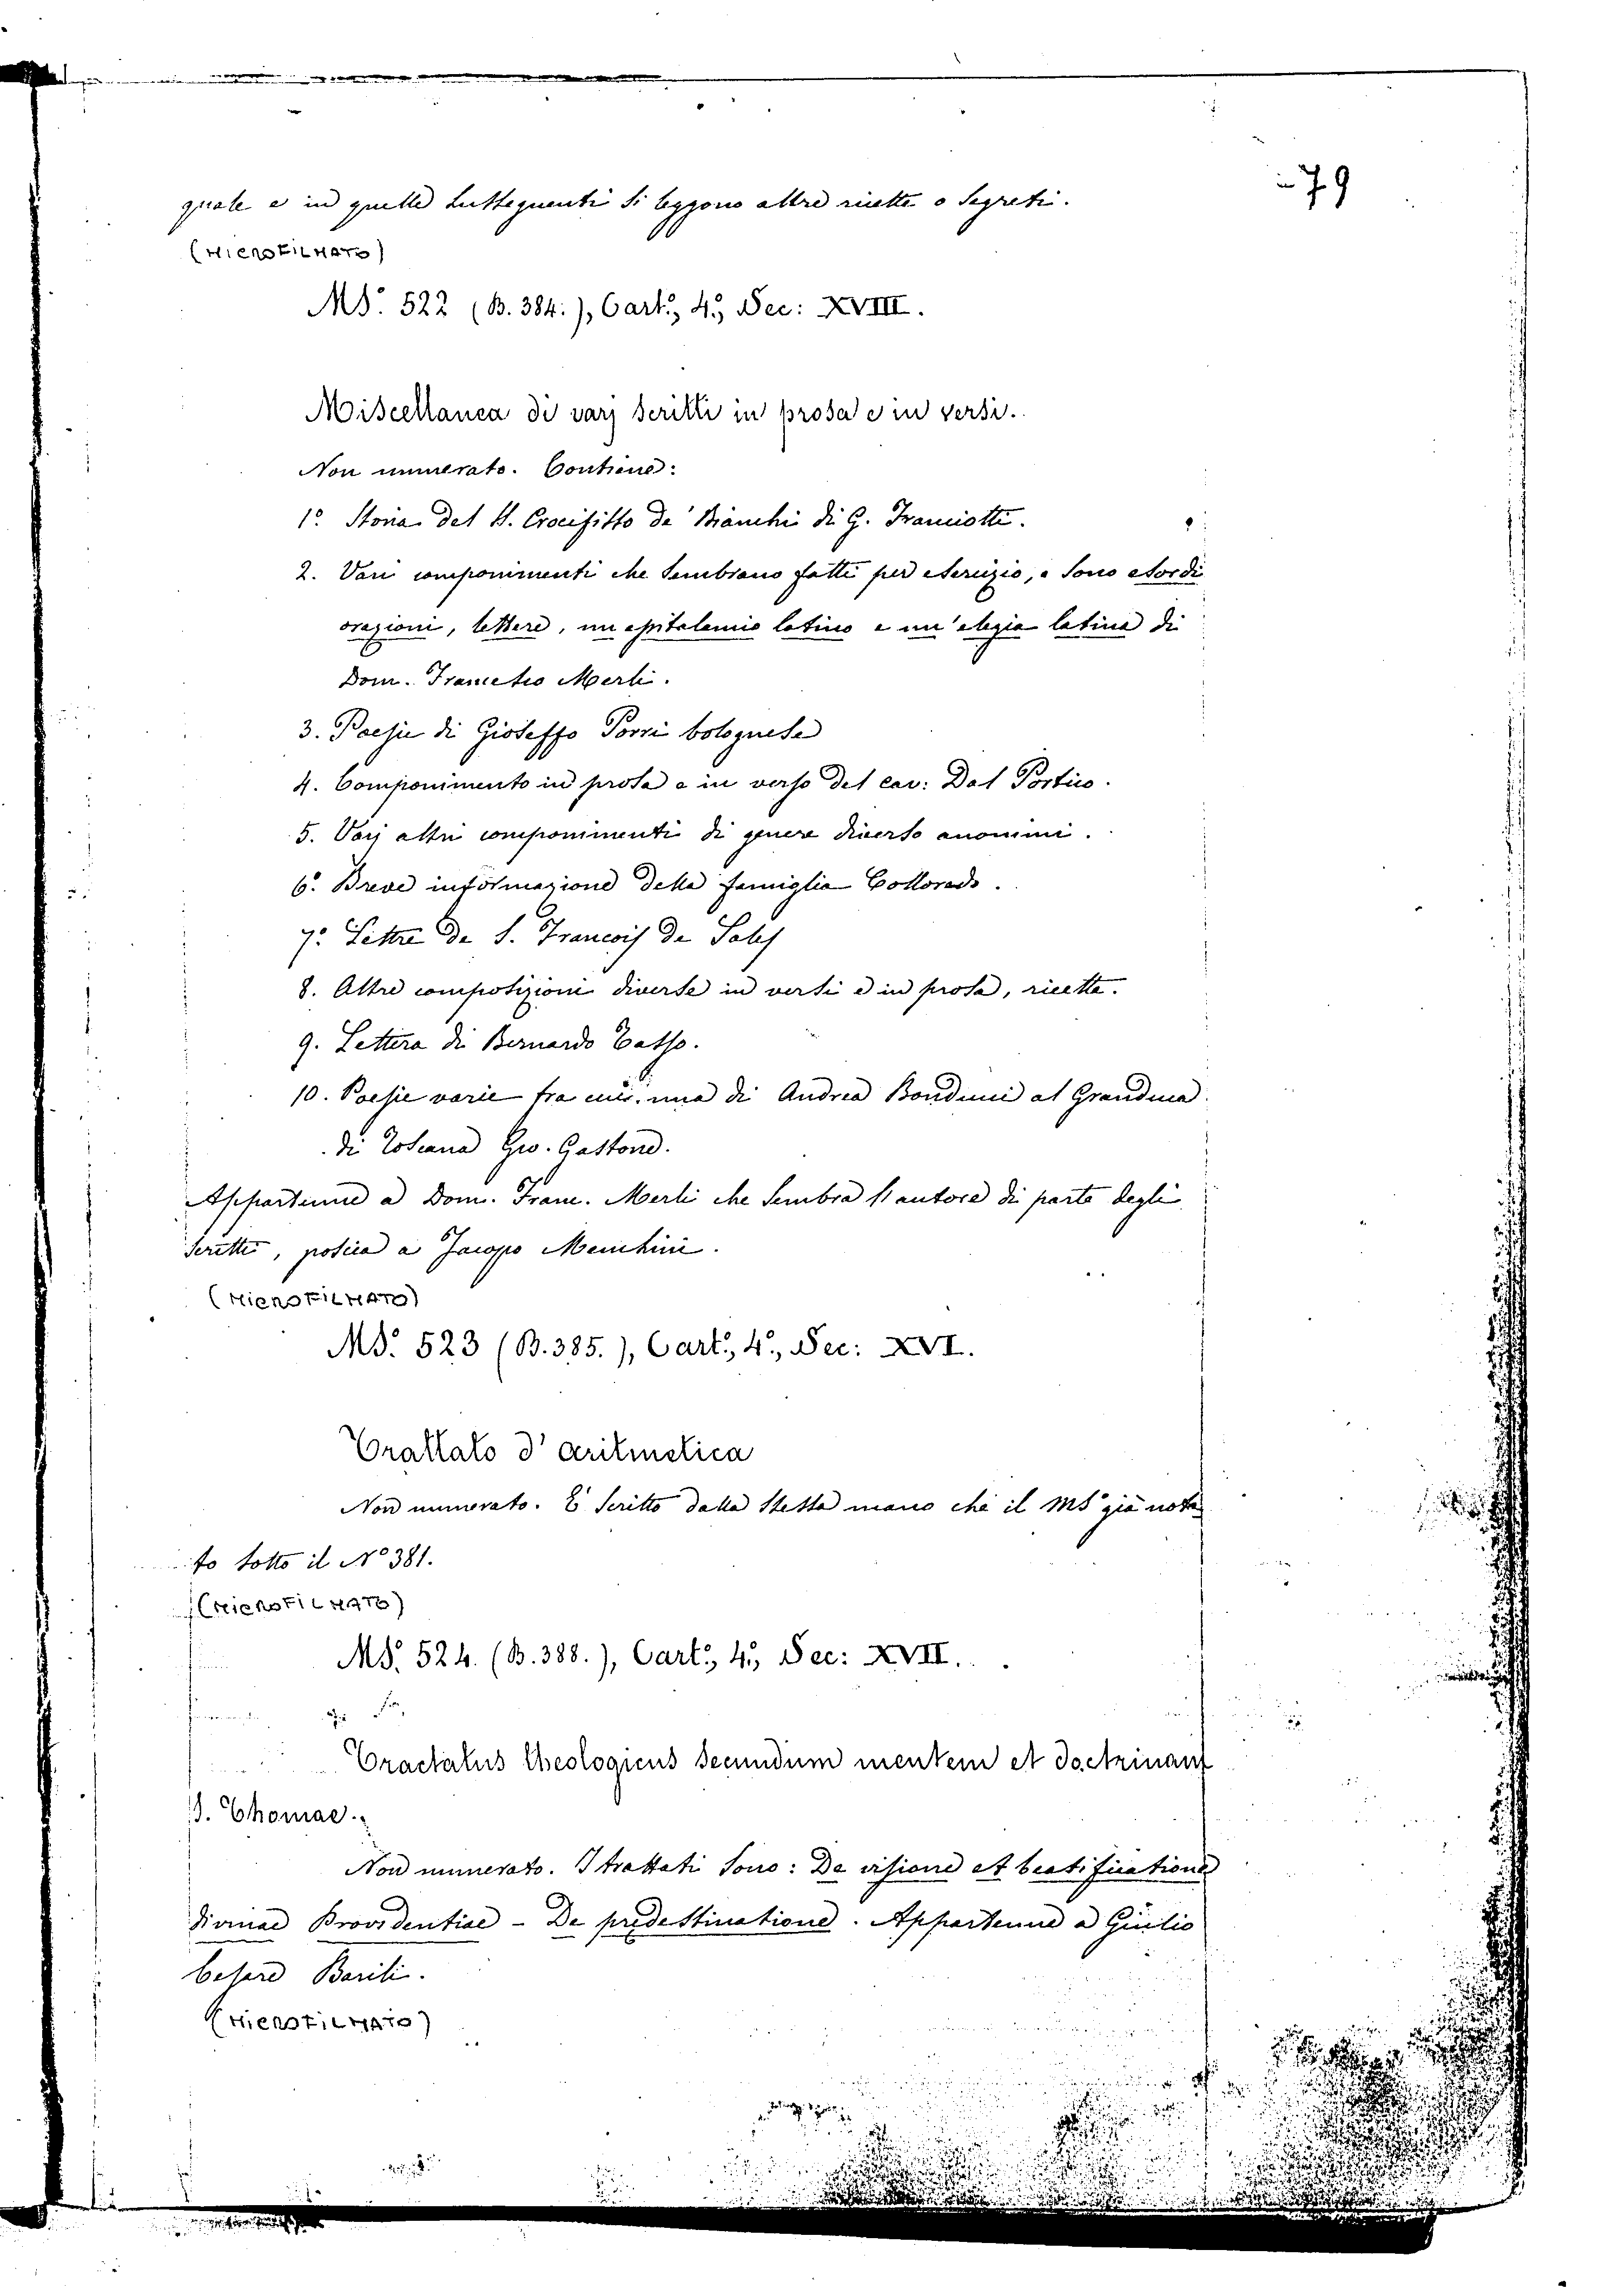 79
quale e in quelle susseguenti si leggono altre ricette o segreti.
(MICROFILMATO)
MS. 522 (B. 384.), Cart., 4.°, Sec: XVIII.
Miscellanea di varj scritti in prosa e in versi.
Non numerato. Contiene:
1.° Storia del SS. Crocifisso de' Bianchi di G. Franciotti.
2. Vari componimenti che sembrano fatti per esercizio, e sono esordi
orazioni, lettere, un epitalamio latino e un' elegia latina di
Dom. Francesco Merli.
3. Poesie di Gioseffo Porri bolognese
4. Componimento in prosa e in verso del cav: Dal Portico.
5. Varj altri componimenti di genere diverso anonimi.
6.° Breve informazione della famiglia Colloredo.
7.° Lettre de S. Francois de Sales
8. Altre composizioni diverse in versi e in prosa, ricette.
9. Lettera di Bernardo Tasso.
10. Poesie varie fra cui una di Andrea Bonducci al Granduca
di Toscana Gio. Gastone.
Appartenne a Dom. Franc. Merli che sembra l'autore di parte degli
scritti, poscia a Jacopo Menchini.
(MICROFILMATO)
MS. 523 (B. 385.), Cart., 4.°, Sec: XVI.
Trattato d' aritmetica
Non numerato. È scritto dalla stessa mano che il MS già nota
to sotto il N.° 381.
(MICROFILMATO)
MS. 524. (B. 388.), Cart., 4.°, Sec: XVII.
Tractatus theologicus secundum mentem et doctrinam
S. Thomae.
Non numerato. I trattati sono: De visione et beatificatione
divinae Providentiae - De predestinatione. Appartenne a Giulio
Cesare Barili.
(MICROFILMATO)